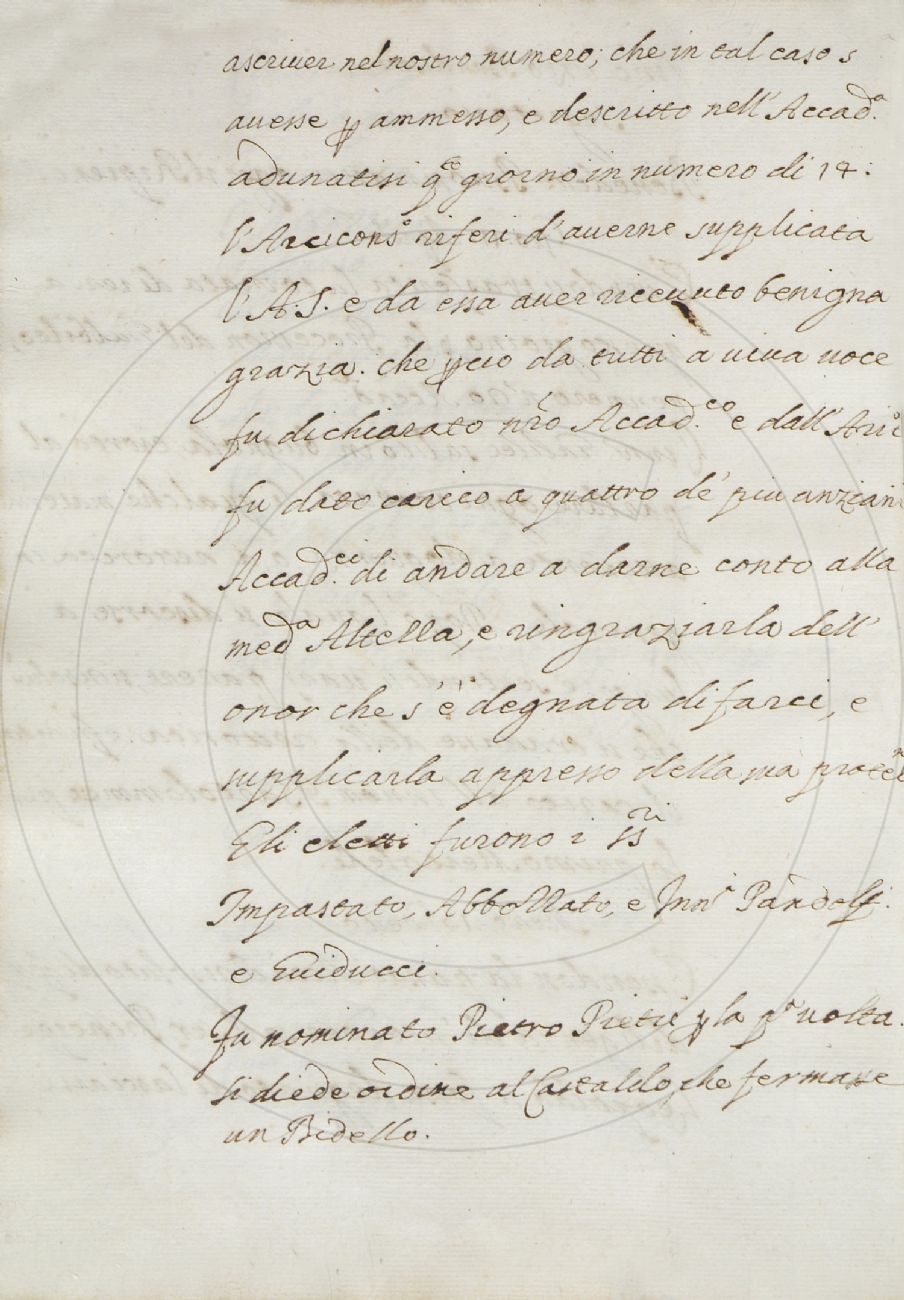 ascriver nel nostro numero; che in tal caso s
auesse p ammesso, e descritto nell'Accad.ª
adunatisi q.to giorno in numero di 14:
l'Arcicons.º riferì d'auerne supplicata
l'A.S. e da essa auer riceuuto benigna
grazia. che pciò da tutti a viua uoce
fu dichiarato nrõ Accad.co e dall'Arc
fu dato carico a quattro de' più anziani
Accad.ci di andare a darne conto alla
med.a Altezza, e ringraziarla dell'
onor che s'è degnata di farci, e
supplicarla appresso della sua protez
E li eletti furono i SS.ri
Impastato, Abbozzato, e Inn.to Pandolf.
e Guiducci.
Fu nominato Pietro Pieti p la p.a uolta.
Si diede ordine al Castaldo che fermasse
un Bidello.